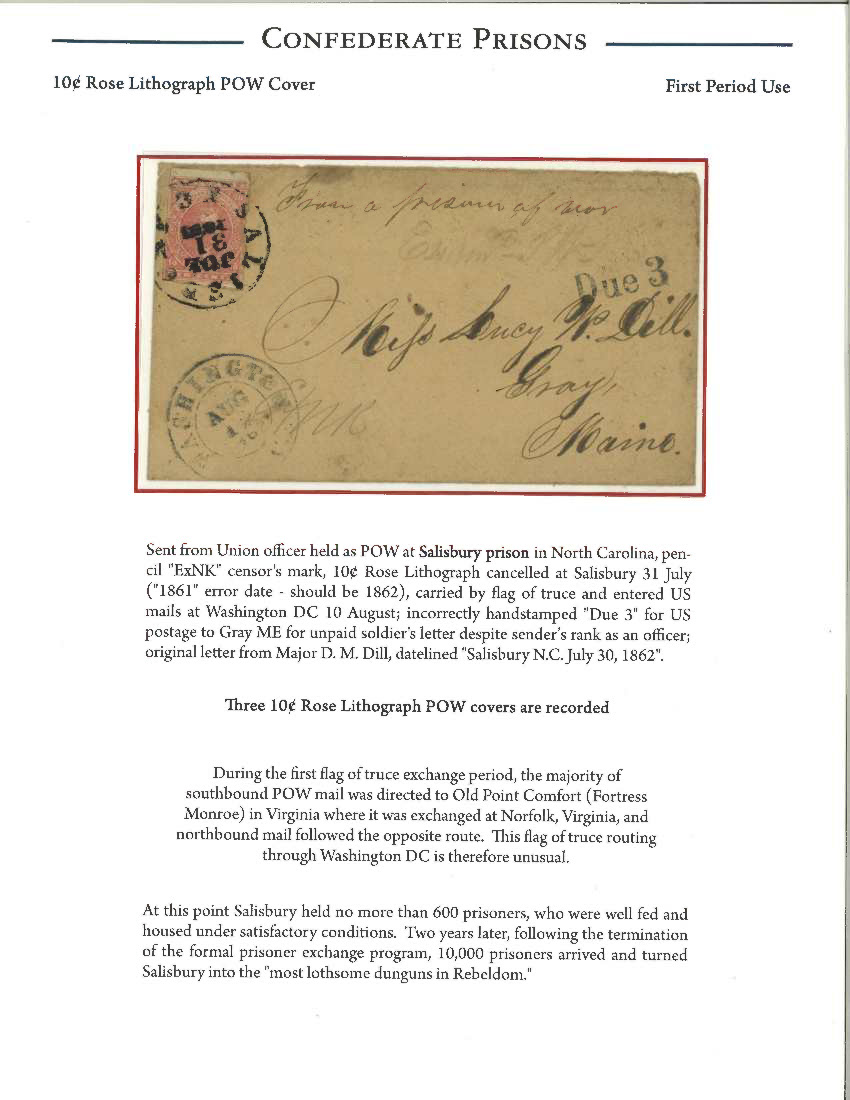 CONFEDERATE PRISONS
10¢ Rose Lithograph POW Cover
First Period Use
From a prisoner of war
Due 3
Miss Lucy W. Dill.
Gray,
Maine.
SALISB
31
JUL
WASHINGTON
AUG
Sent from Union officer held as POW at Salisbury prison in North Carolina, pen-
cil "ExNK" censor's mark, 10¢ Rose Lithograph cancelled at Salisbury 31 July
("1861" error date - should be 1862), carried by flag of truce and entered US
mails at Washington DC 10 August; incorrectly handstamped "Due 3" for US
postage to Gray ME for unpaid soldier's letter despite sender's rank as an officer;
original letter from Major D. M. Dill, datelined "Salisbury N.C. July 30, 1862".
Three 10¢ Rose Lithograph POW covers are recorded
During the first flag of truce exchange period, the majority of
southbound POW mail was directed to Old Point Comfort (Fortress
Monroe) in Virginia where it was exchanged at Norfolk, Virginia, and
northbound mail followed the opposite route. This flag of truce routing
through Washington DC is therefore unusual.
At this point Salisbury held no more than 600 prisoners, who were well fed and
housed under satisfactory conditions. Two years later, following the termination
of the formal prisoner exchange program, 10,000 prisoners arrived and turned
Salisbury into the "most lothsome dunguns in Rebeldom."